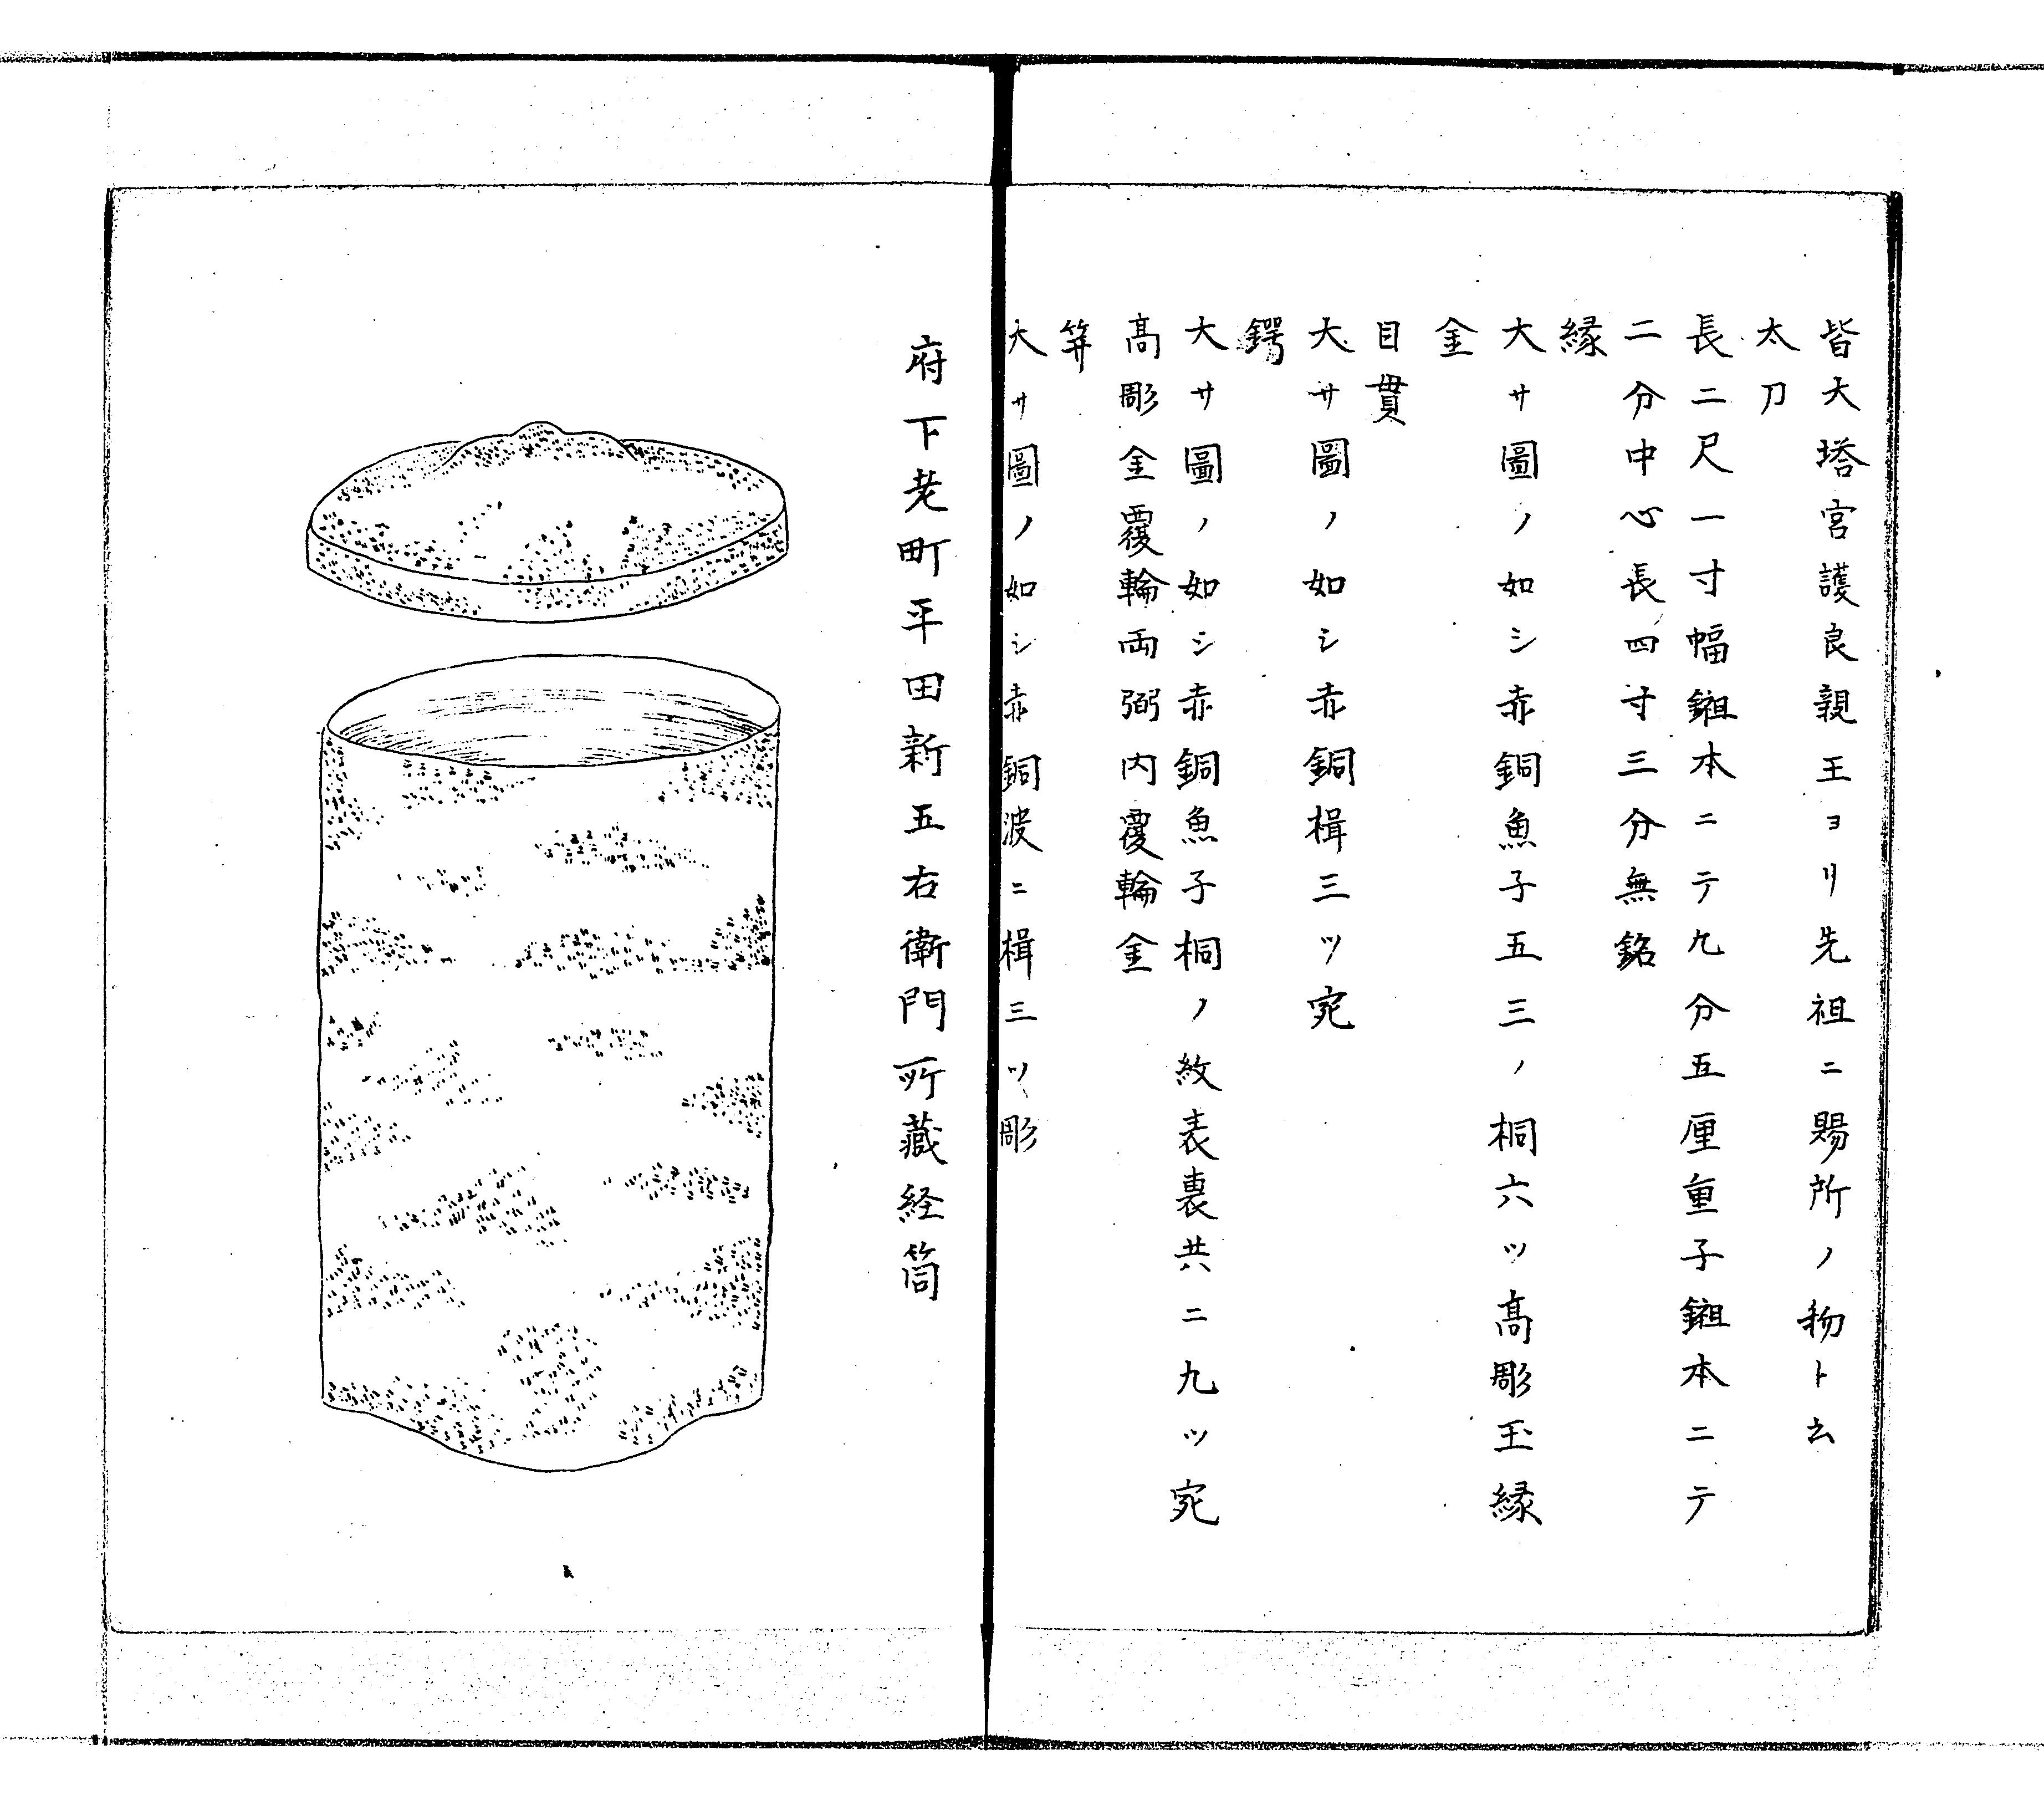 皆大塔宮護良親王ヨリ先祖ニ賜所ノ物ト云
太刀
長二尺一寸幅鎺本ニテ九分五厘重子鎺本ニテ
二分中心長四寸三分無銘
縁
大サ圖ノ如シ赤銅魚子五三ノ桐六ツ高彫玉縁
金
目貫
大サ圖ノ如シ赤銅楫三ツ宛
鍔
大サ圖ノ如シ赤銅魚子桐ノ紋表裏共ニ九ツ宛
高彫金覆輪両弼内覆輪金
笄
大サ圖ノ如シ赤銅波ニ楫三ツ彫
府下老町平田新五右衛門所藏経筒